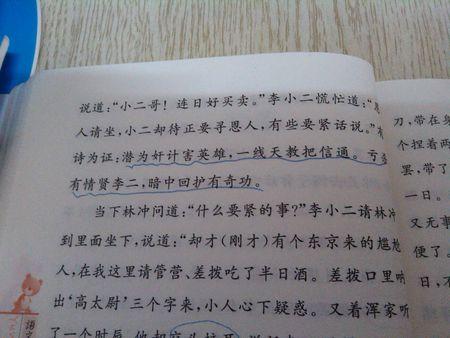 说道：“小二哥！连日好买卖。”李小二慌忙道：“恩
人请坐，小二却待正要寻恩人，有些要紧话说。”有
诗为证：潜为奸计害英雄，一线天教把信通。亏杀
有情贤李二，暗中回护有奇功。
当下林冲问道：“什么要紧的事？”李小二请林冲
到里面坐下，说道：“却才（刚才）有个东京来的尴尬
人，在我这里请管营、差拨吃了半日酒。差拨口里呐
出‘高太尉’三个字来，小人心下疑惑。又着浑家听
了一个时辰
刀，带在身
个捏着两
罢，带了
一日。
又无事
便了。
日，不
语文